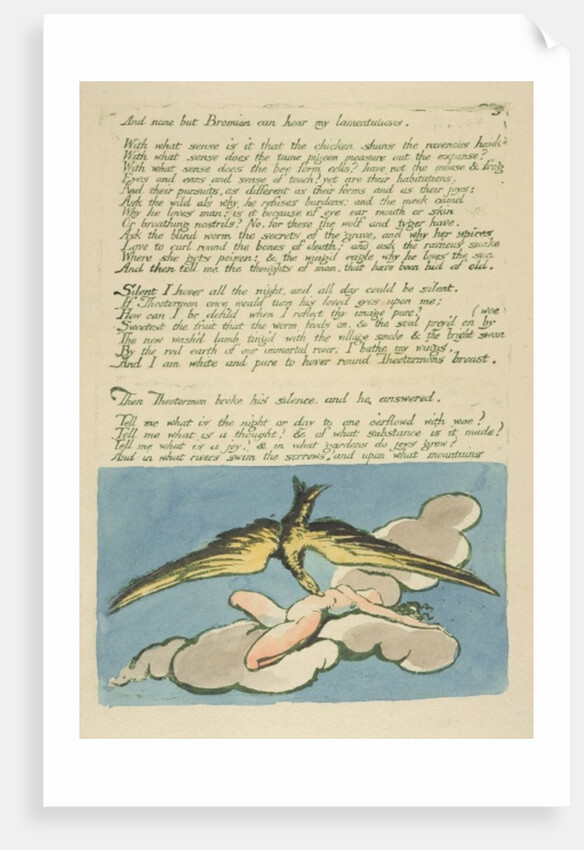 And none but Bromion can hear my lamentations.
With what sense is it that the chicken shuns the ravenous hawk?
With what sense does the tame pigeon measure out the expanse?
With what sense does the bee form cells? have not the mouse & frog
Eyes and ears and sense of touch? yet are their habitations,
And their pursuits, as different as their forms and as their joys:
Ask the wild ass why he refuses burdens: and the meek camel
Why he loves man: is it because of eye ear mouth or skin
Or breathing nostrils? No. for these the wolf and tyger have.
Ask the blind worm the secrets of the grave, and why her spires
Love to curl round the bones of death; and ask the rav'nous snake
Where she gets poison: & the wing'd eagle why he loves the sun
And then tell me the thoughts of man, that have been hid of old.
Silent I hover all the night, and all day could be silent.
If Theotormon once would turn his loved eyes upon me;
How can I be defild when I reflect thy image pure? (woe
Sweetest the fruit that the worm feeds on. & the soul prey'd on by
The new wash'd lamb ting'd with the village smoke & the bright swan
By the red earth of our immortal river: I bathe my wings.
And I am white and pure to hover round Theotormons breast.
Then Theotormon broke his silence. and he answered.
Tell me what is the night or day to one oerflowd with woe?
Tell me what is a thought? & of what substance is it made?
Tell me what is a joy? & in what gardens do joys grow?
And in what rivers swim the sorrows? and upon what mountains